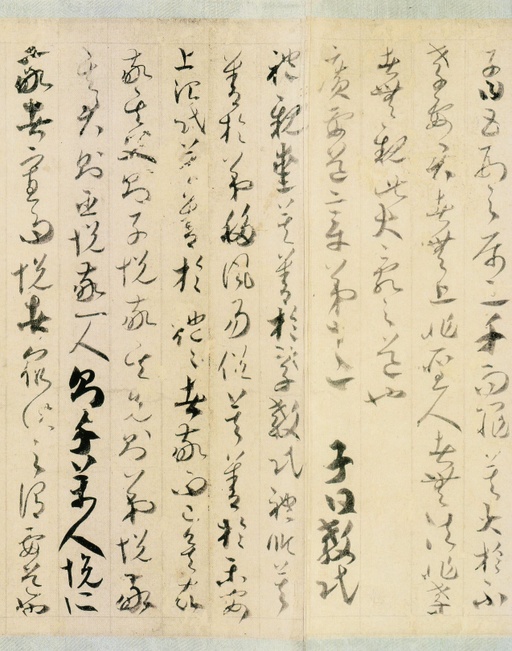 子曰五刑之属三千而罪莫大於不
孝要君者無上非聖人者無法非孝
者無親此大亂之道也
廣要道章第十二 子曰教民
禮親愛莫善於孝教民禮順莫
善於弟移風易俗莫善於樂安
上治民莫善於禮禮者敬而已矣故
敬其父則子悦敬其兄則弟悦敬
其君則臣悦敬一人則千萬人悦所
敬者寡而悦者衆此之謂要道也